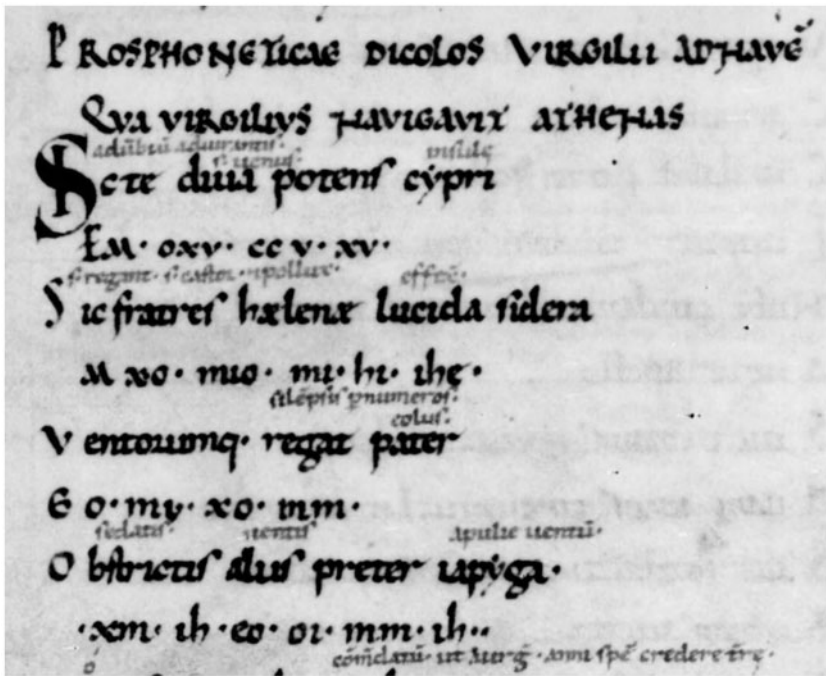 PROSPHONETICAE DICOLOS VIRGILII AD NAVĒ
QVA VIRGILIVS NAVIGAVIT ATHENAS
s. uenus. insule
SIc te diua potens cypri
EM· oxv· cc v· xv·
s. regant· s. castor· pollux· effecē·
Sic fratres hælenæ lucida sidera
M xo· mio· my· hi· ihę·
silēpsis numeros·
eolus·
Ventorumq· regat pater
E o· my· xo· mm·
sedatis· uentis apulie uentū·
Obstrictis aliis preter iapyga·
·xm· ih·eo· oi· mm· ih··
ut credere